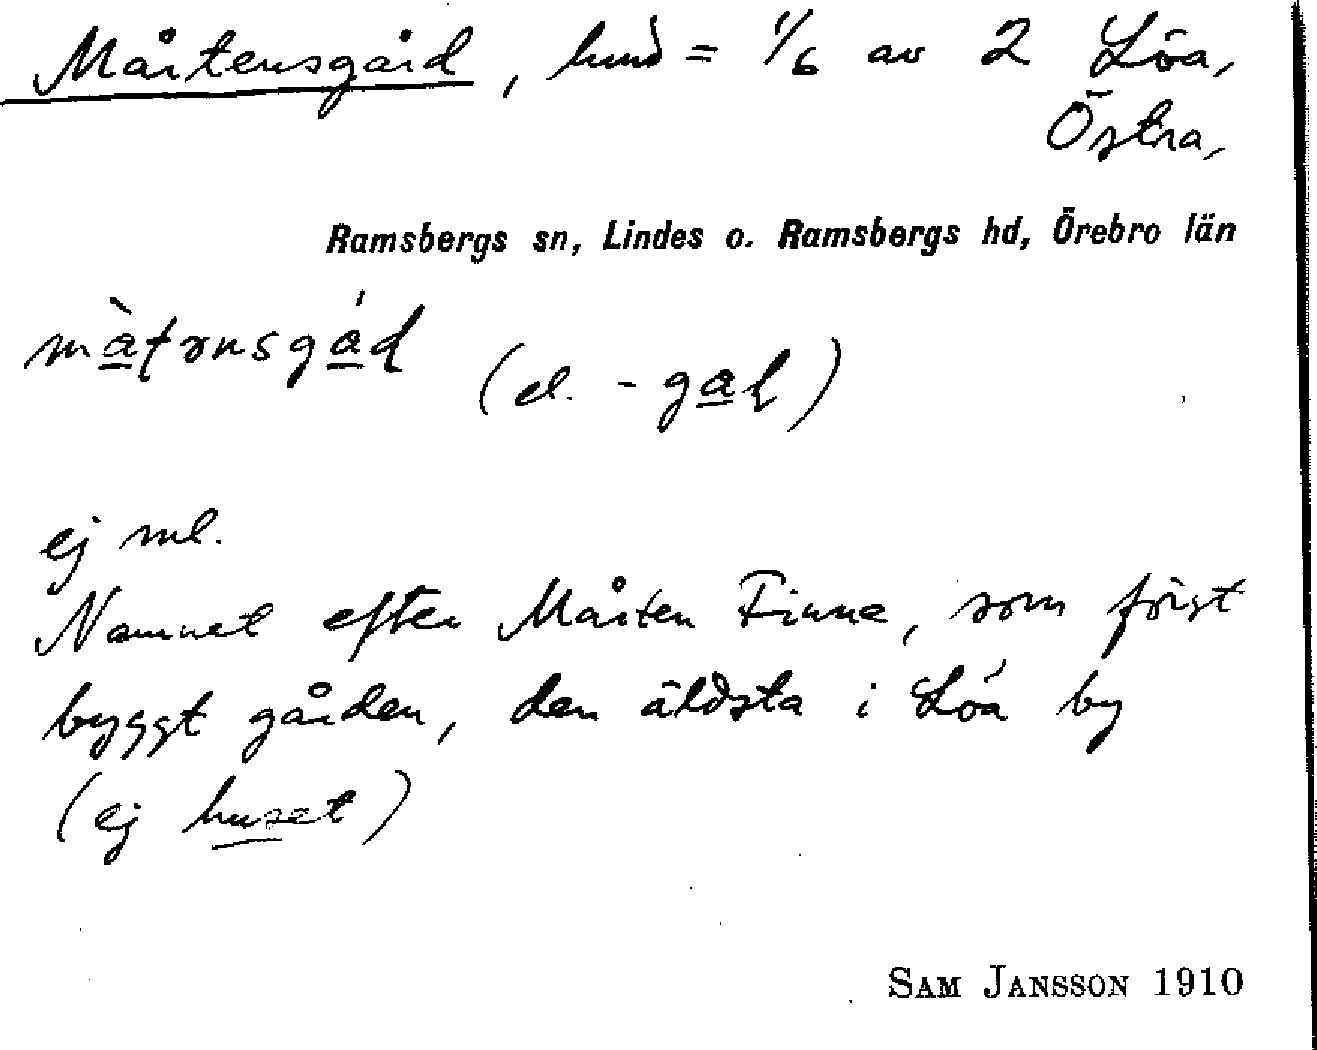 Mårtensgård, hmd = 1/6 av 2 Löa,
Östra,
Ramsbergs sn, Lindes o. Ramsbergs hd, Örebro län
(el. - gaɭ)
ej ml.
Namnet efter Mårten Finne, som först
byggt gården, den äldsta i Löa by
(ej huset)
SAM JANSSON 1910